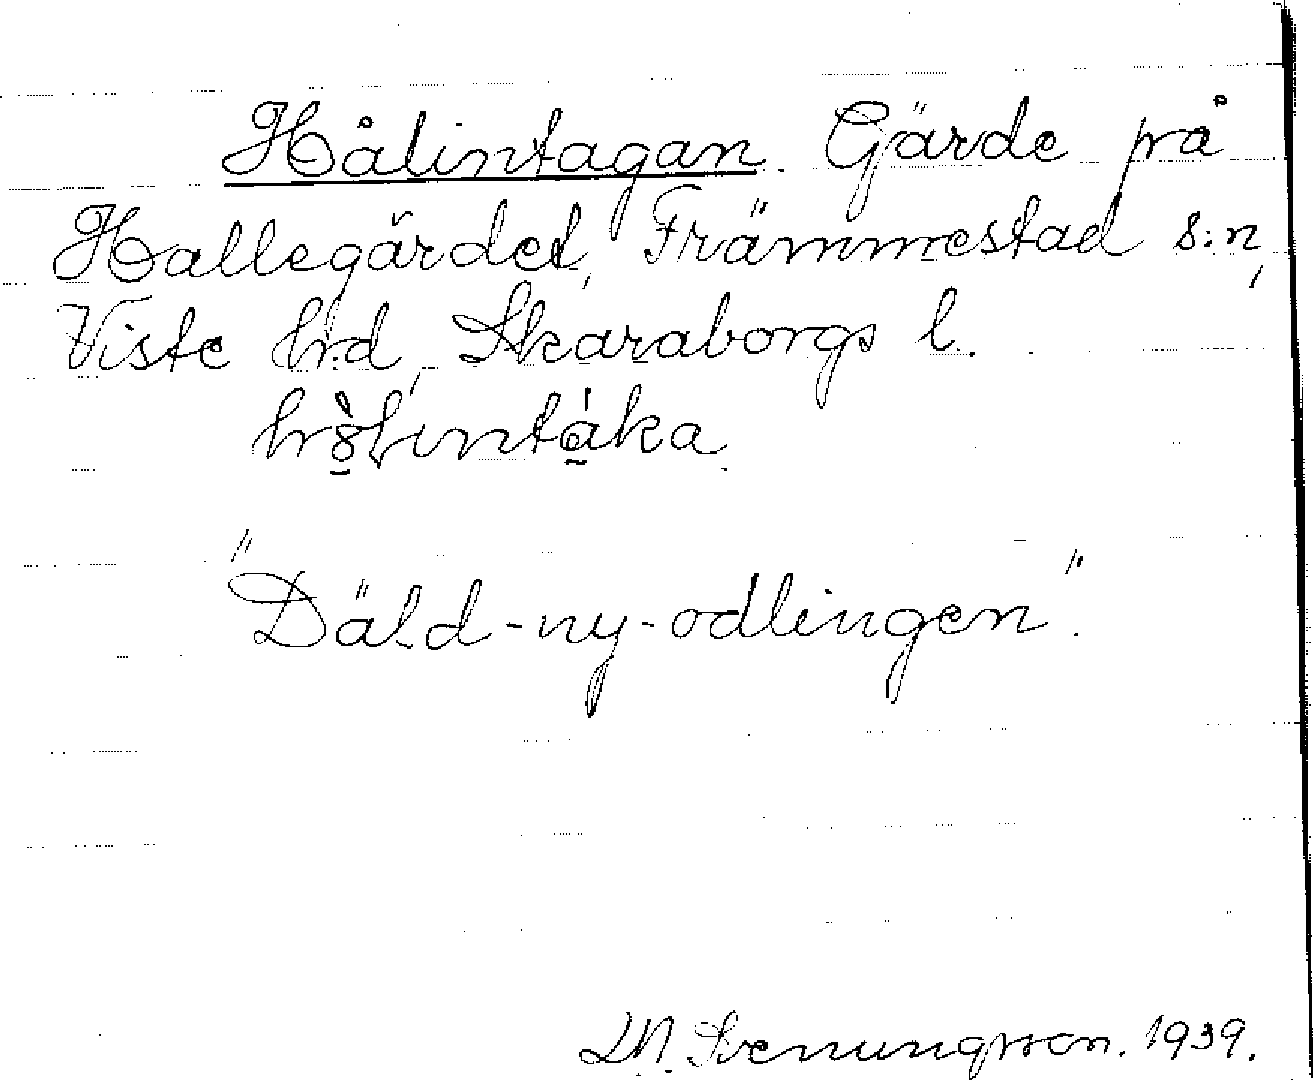 Hålintagan. Gärde på
Hallegärdet, Främmestad s:n,
Viste hrd, Skaraborgs l.

"Däld-ny-odlingen".
Svenungsson. 1939.